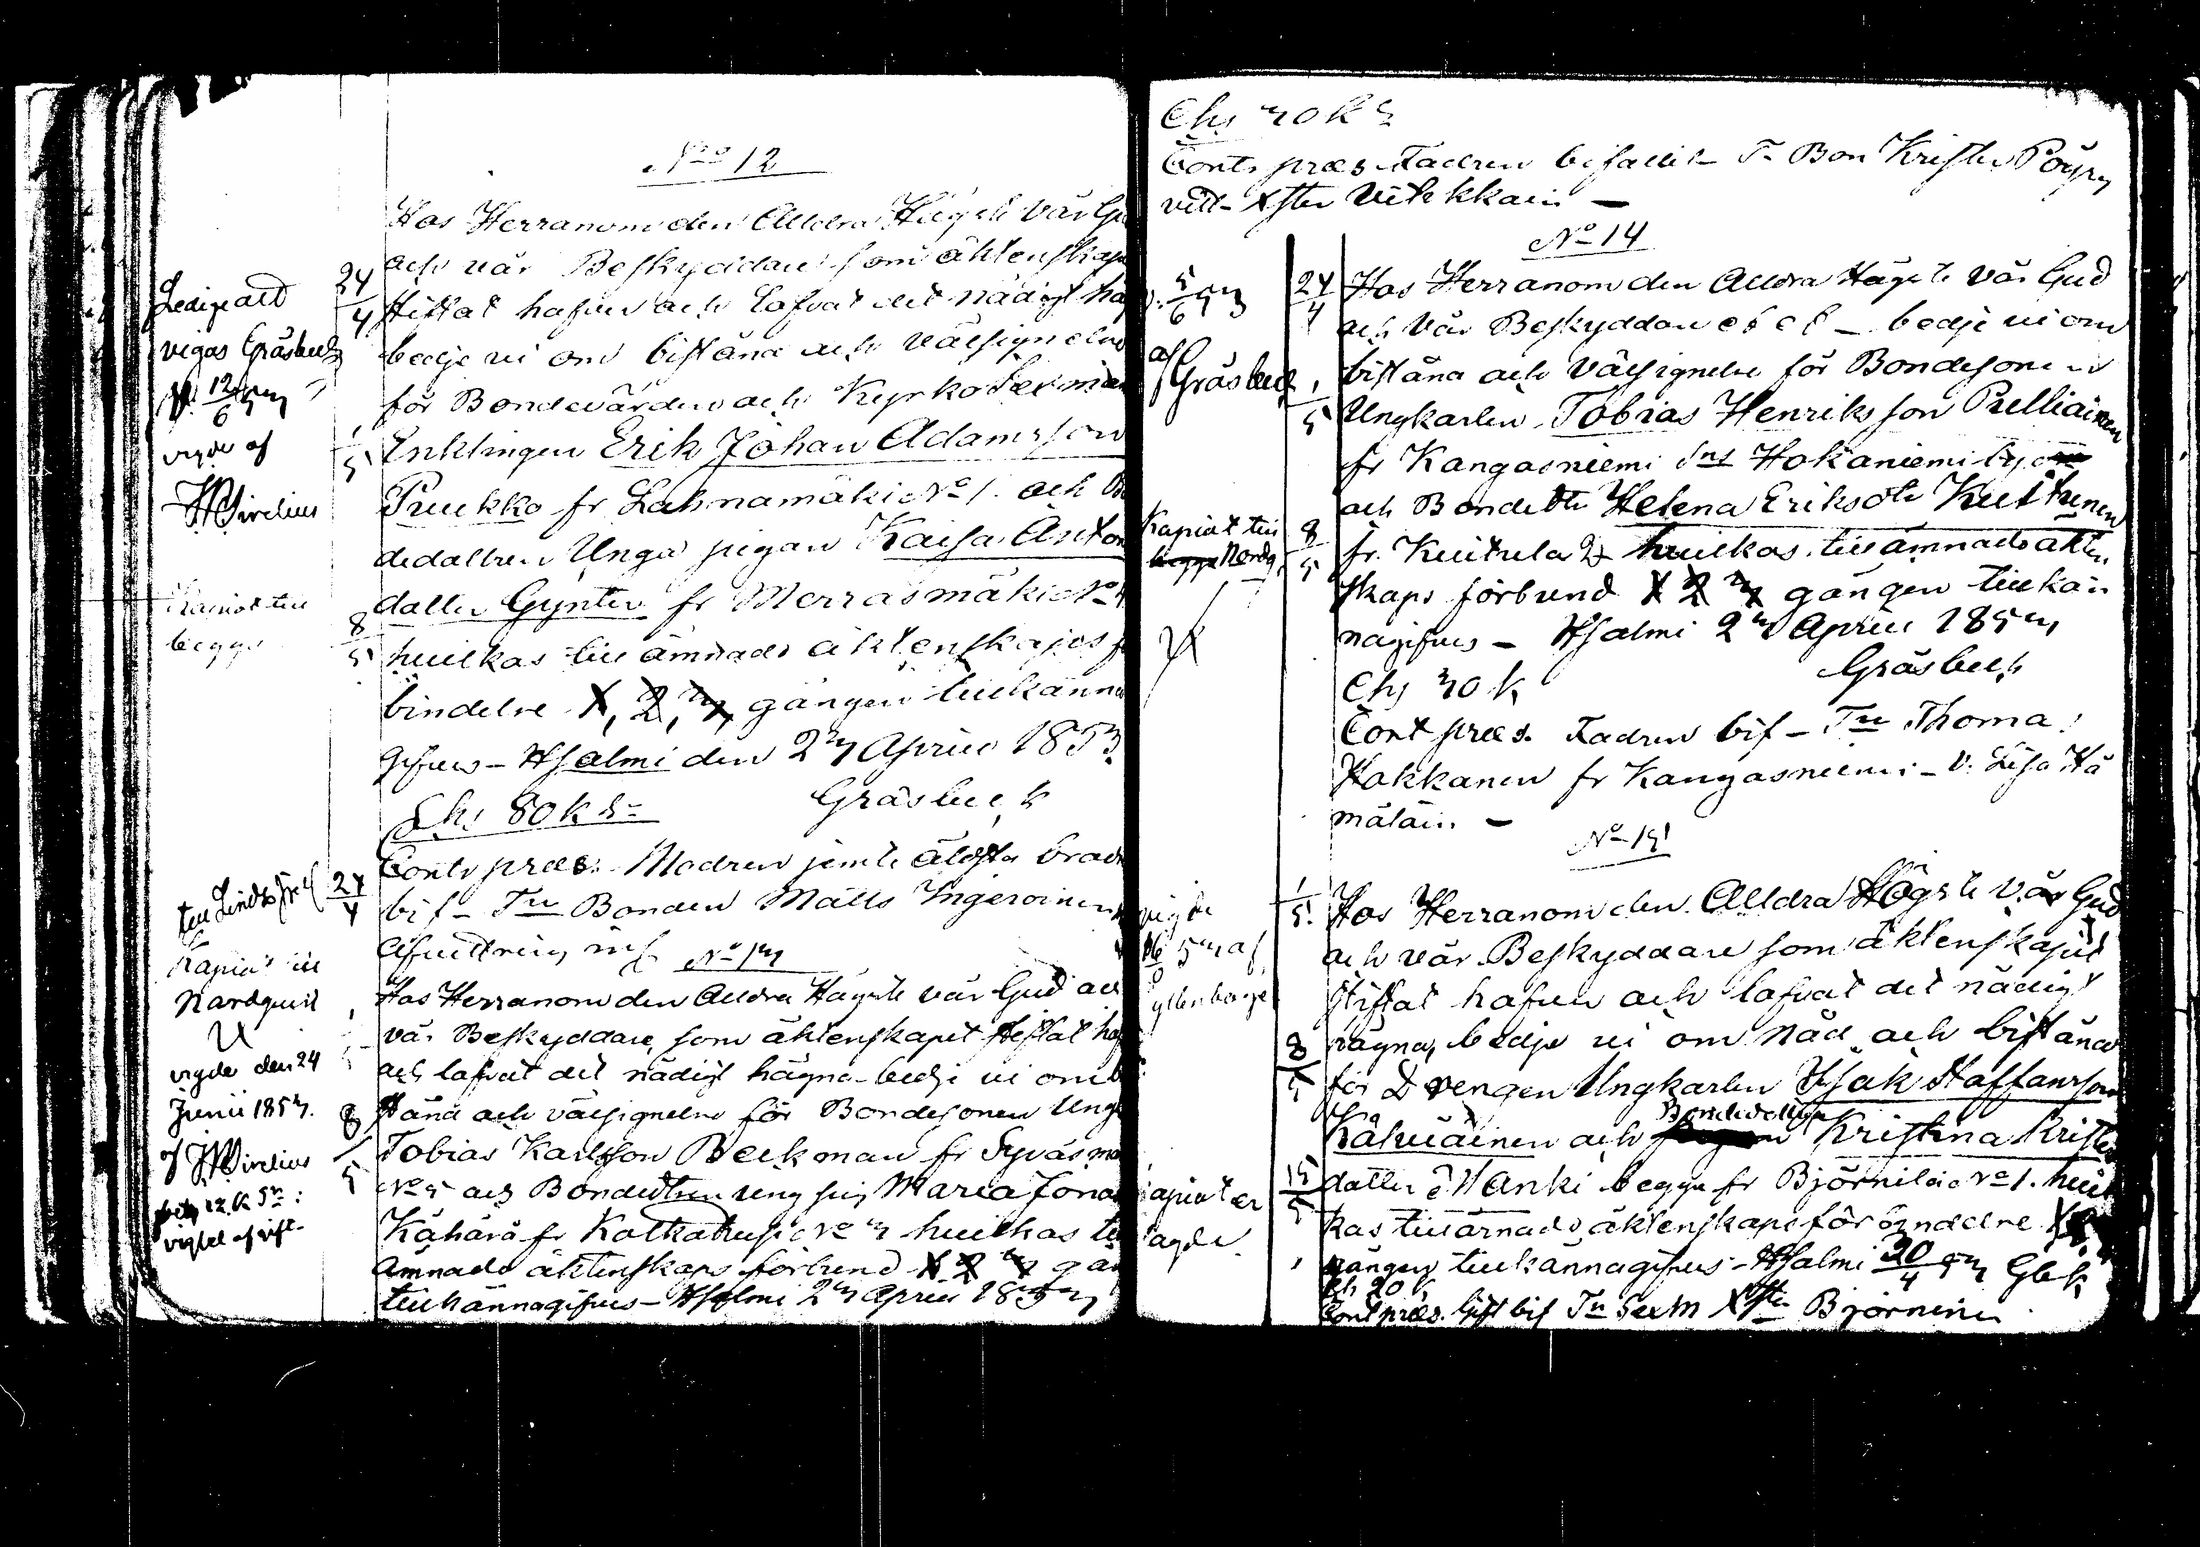 No 12
Hos Herranom den Alldra Högste vår Gu
och vår Beskyddare som äktenskape
stiftat hafver och lofvat det nådigt hä
bedje vi om bistånd och välsignelse
för Bondevärden och Kyrko Sexman
Enklingen Erik Johan Adamsson
Puukko fr Lahnamäki No 1. och Bo
dedattren Unga pigan Kaisa Anton
datter Gynter fr Merrasmäki No 4
hvilkas till ämnade äktenskaps f
bindelse 1, 2, 3, gången tillkänna
gifves - Hjsalmi den 23 April 1853
Chs 80 k Sr
Gräsbeck
Contr præs. Modren jemte äldsta brodr
bif - Tn Bonden Matts Ingeroinen
Afvittring
No 13
Hos Herranom den Alldra Högste vår Gud och
vår Beskyddare, som äktenskapet stiftat haf
och lofvat det nådigt hägna bedje vi om bi
stånd och välsignelse för Bondesonen Ungk
Tobias Karlsson Beckman fr Sysäsmä
No 5 och Bondedtren ung pig Maria Jonas
Kähärä fr Kotkatusi No 3 hvilkas till
ämnade äktenskaps förbund 1 2 3 gån
tillkännagifves - Hjsalmi 23 April 1853
Ledige att
vigas Gräsbeck
d. 12/6 53
vigde af
HWirelius
Kapiat till
begge
24/4
1/5
8/5
24/4
Kapiat till
Nordqvist
vigde den 24
Junii 1853.
af HWirelius
8/5
Chs 30 k S
Contr præs Fadren bifallit - T. Bon Krister Pöyry
vitt - Xster Vitikkain -
No 14
Hos Herranom den Alldra Högste vår Gud
och vår Beskyddare &c &c - bedje vi om
bistånd och välsignelse för Bondesonen
Ungkarlen Tobias Henriksson Pelliainen
fr Kangasniemi Sns Hokaniemi by
och Bondedtr Helena Eriksdtr Kuitunen
fr. Kuitula 2 hvilkas till ämnade äkten
skaps förbund 1 2 3 gången tillkän
nagifves - Hjsalmi 23 April 1853
Gräsbeck
Chs 30 k
Contr præs. Fadren bif - Tn Thoma
Hokkanen fr Kangasniemi - V. Lisa Hä
mäläin -
No 15
Hos Herranom den Alldra Högste vår Gud
och vår Beskyddare som äktenskapet
stiftat hafver och lofvat det nådigt
hägna, bedje vi om nåd och bistånd
för Drengen Ungkarlen Isak Staffansson
Kälviäinen och Bondedottren Kristina Krister
datter Hanki begge fr Björnilä No 1. hvil
kas tillämnade äktenskaps förbindelse
gången tillkännagifves - Hjsalmi 30/4 53 Gbk
Ch 20 k
Contr præs. Gift bif Tn Sexm Xster Björninen
5/6 53
af Gräsbeck
24/4
1/5
Kapiat till
Nordq
8/5
vigde
53 af
Gyllenbögel
1/5.
8/5
15/5
Kapiat er
lagde